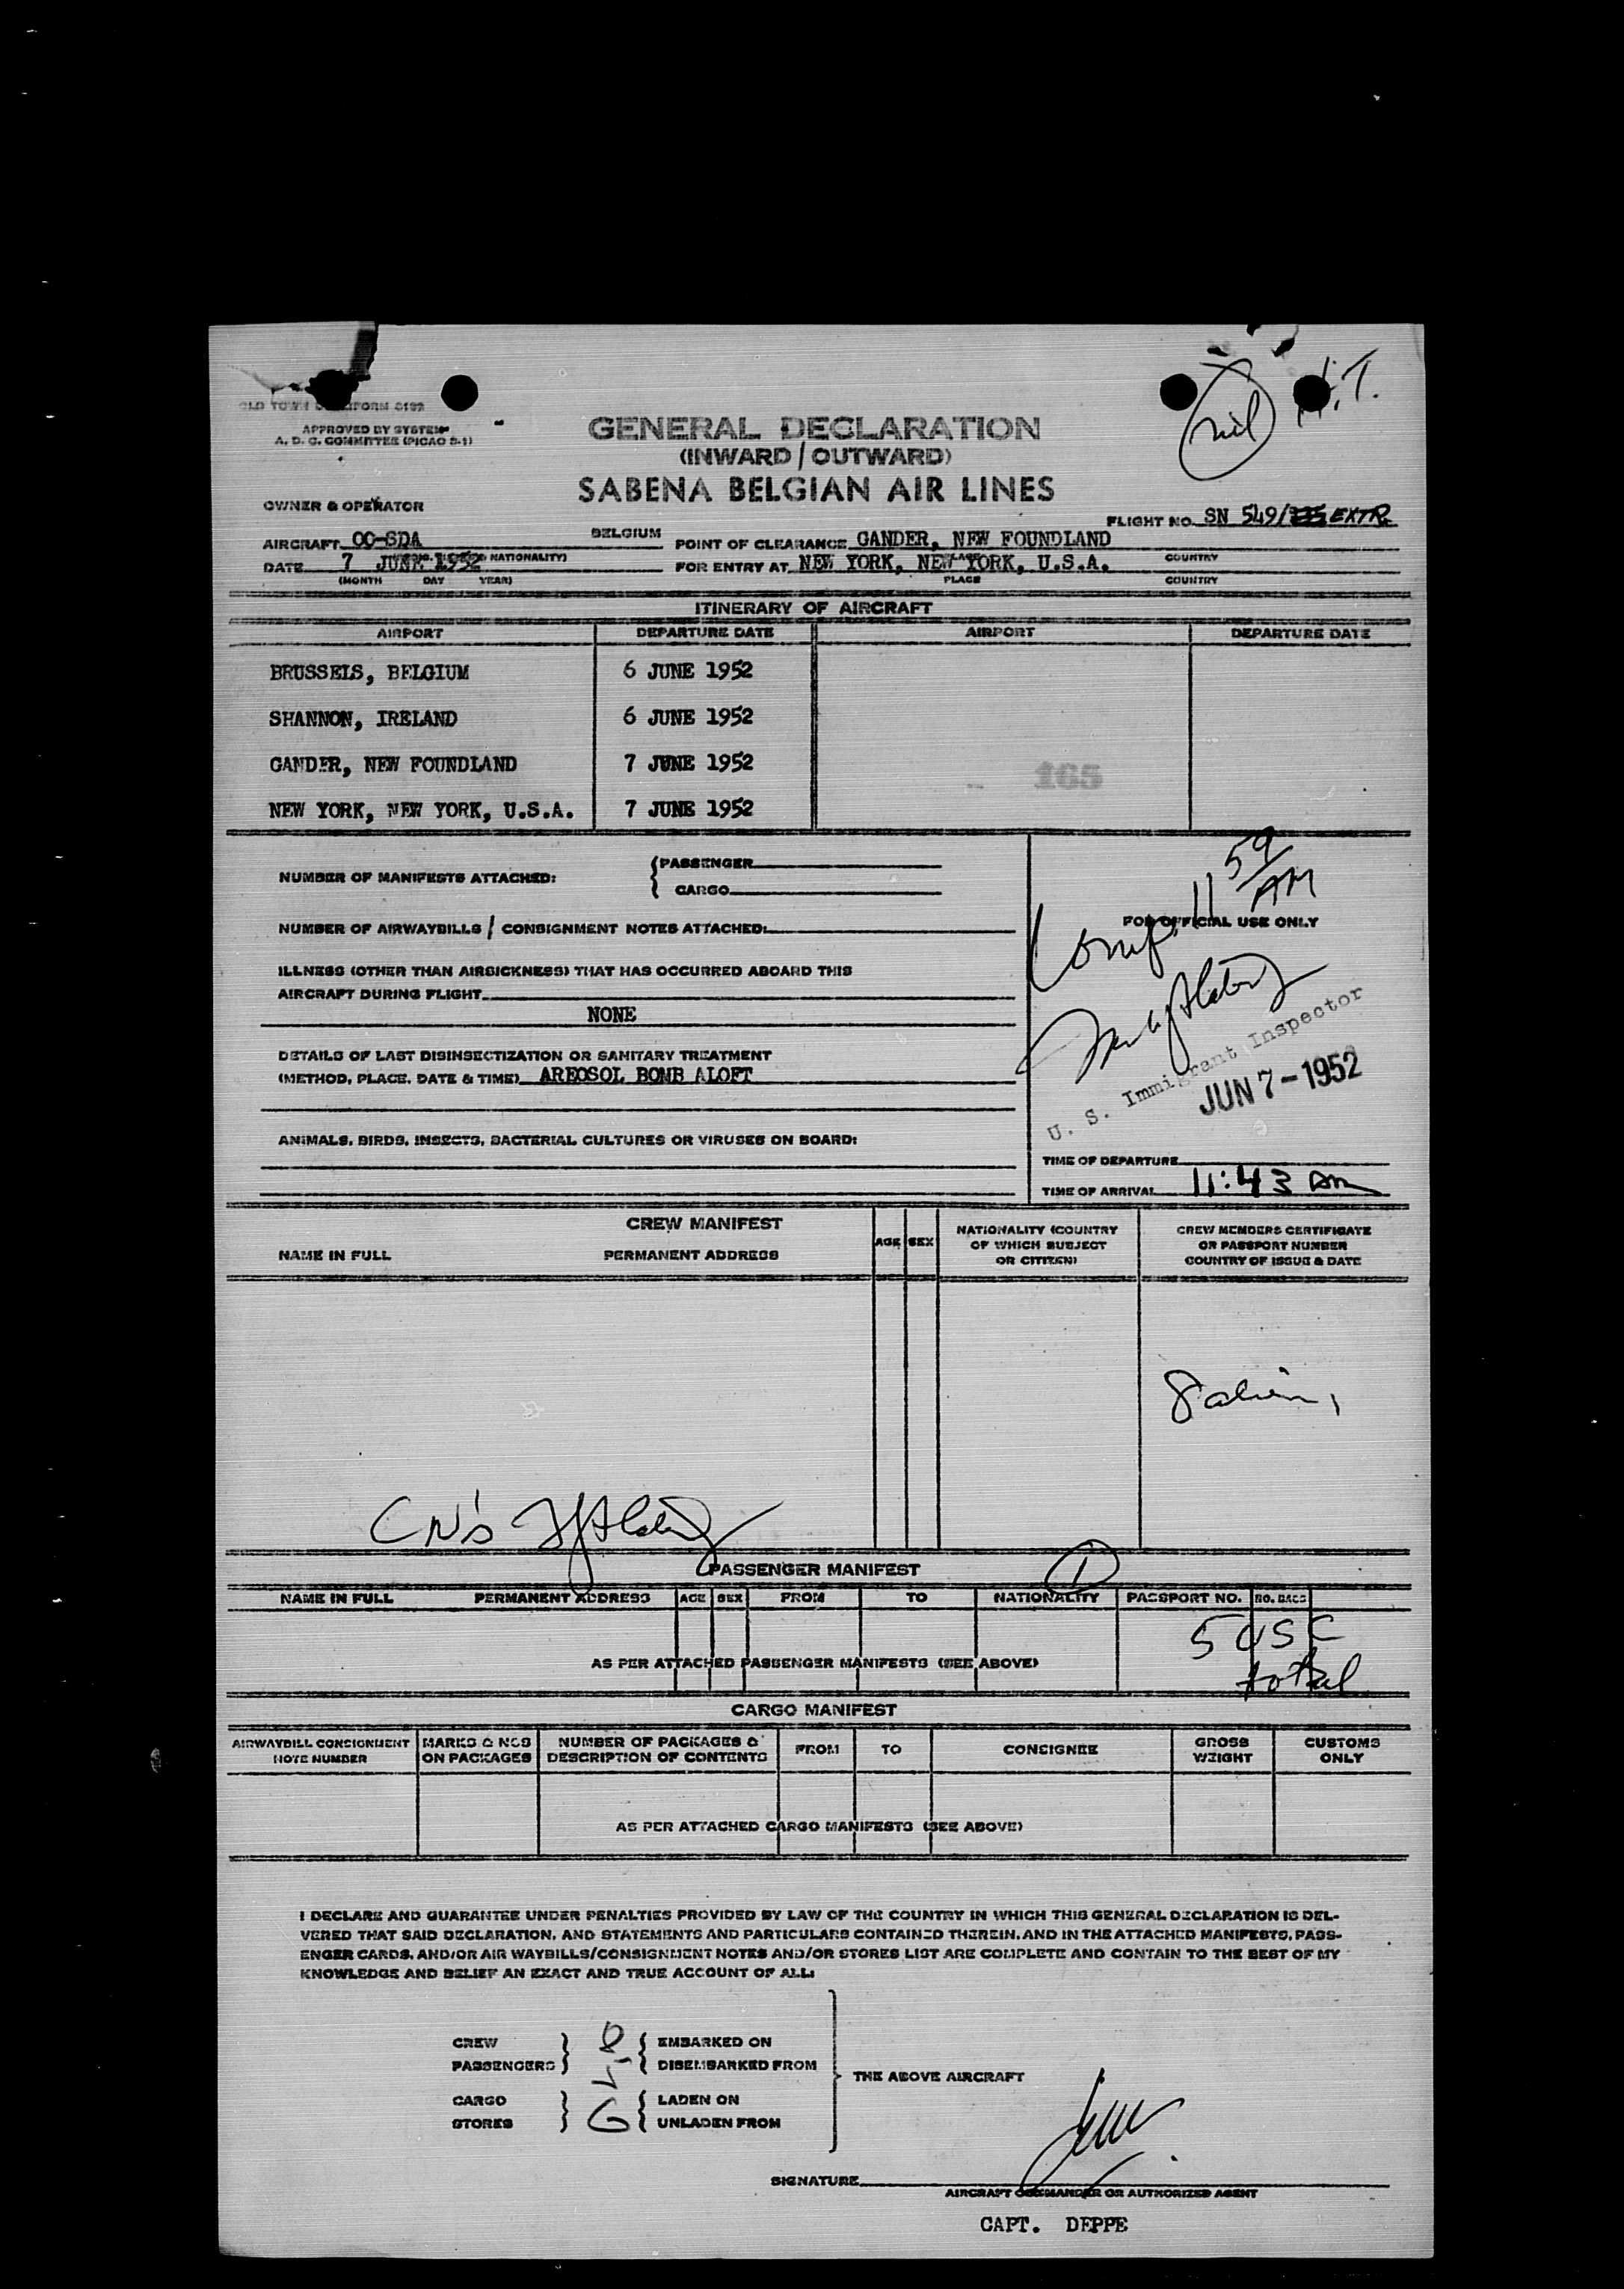 nil
H.T.
APPROVED BY SYSTEM
A. D. C. COMMITTEE (PICAO 5-1)
GENERAL DECLARATION
(INWARD / OUTWARD)
SABENA BELGIAN AIR LINES
OWNER & OPERATOR
FLIGHT NO. SN 549/ EXTR.
AIRCRAFT OO-SDA BELGIUM
POINT OF CLEARANCE GANDER, NEW FOUNDLAND
NATIONALITY) PLACE COUNTRY
DATE 7 JUNE 1952
FOR ENTRY AT NEW YORK, NEW YORK, U.S.A.
(MONTH DAY YEAR) PLACE COUNTRY
ITINERARY OF AIRCRAFT
AIRPORT DEPARTURE DATE AIRPORT DEPARTURE DATE
BRUSSELS, BELGIUM 6 JUNE 1952
SHANNON, IRELAND 6 JUNE 1952
GANDER, NEW FOUNDLAND 7 JUNE 1952
165
NEW YORK, NEW YORK, U.S.A. 7 JUNE 1952
NUMBER OF MANIFESTS ATTACHED: PASSENGER
CARGO
NUMBER OF AIRWAYBILLS / CONSIGNMENT NOTES ATTACHED:
ILLNESS (OTHER THAN AIRSICKNESS) THAT HAS OCCURRED ABOARD THIS
AIRCRAFT DURING FLIGHT
NONE
DETAILS OF LAST DISINSECTIZATION OR SANITARY TREATMENT
(METHOD, PLACE, DATE & TIME) AREOSOL BOMB ALOFT
ANIMALS, BIRDS, INSECTS, BACTERIAL CULTURES OR VIRUSES ON BOARD:
FOR OFFICIAL USE ONLY
Comp. 11 59 AM
U. S. Immigrant Inspector
JUN 7 - 1952
TIME OF DEPARTURE
TIME OF ARRIVAL 11:43 am
CREW MANIFEST
NAME IN FULL PERMANENT ADDRESS AGE SEX NATIONALITY (COUNTRY OF WHICH SUBJECT OR CITIZEN) CREW MEMBERS CERTIFICATE OR PASSPORT NUMBER COUNTRY OF ISSUE & DATE
8 alien,
CN's
PASSENGER MANIFEST
1
NAME IN FULL PERMANENT ADDRESS AGE SEX FROM TO NATIONALITY PASSPORT NO. NO. BAGS
5 USC
total
AS PER ATTACHED PASSENGER MANIFESTS (SEE ABOVE)
CARGO MANIFEST
AIRWAYBILL CONSIGNMENT NOTE NUMBER MARKS & NOS ON PACKAGES NUMBER OF PACKAGES & DESCRIPTION OF CONTENTS FROM TO CONSIGNEE GROSS WEIGHT CUSTOMS ONLY
AS PER ATTACHED CARGO MANIFESTS (SEE ABOVE)
I DECLARE AND GUARANTEE UNDER PENALTIES PROVIDED BY LAW OF THE COUNTRY IN WHICH THIS GENERAL DECLARATION IS DEL-
VERED THAT SAID DECLARATION, AND STATEMENTS AND PARTICULARS CONTAINED THEREIN, AND IN THE ATTACHED MANIFESTS, PASS-
ENGER CARDS, AND/OR AIR WAYBILLS/CONSIGNMENT NOTES AND/OR STORES LIST ARE COMPLETE AND CONTAIN TO THE BEST OF MY
KNOWLEDGE AND BELIEF AN EXACT AND TRUE ACCOUNT OF ALL:
CREW 8 EMBARKED ON
PASSENGERS 5 DISEMBARKED FROM
THE ABOVE AIRCRAFT
CARGO LADEN ON
STORES UNLADEN FROM
SIGNATURE
AIRCRAFT COMMANDER OR AUTHORIZED AGENT
CAPT. DEPPE